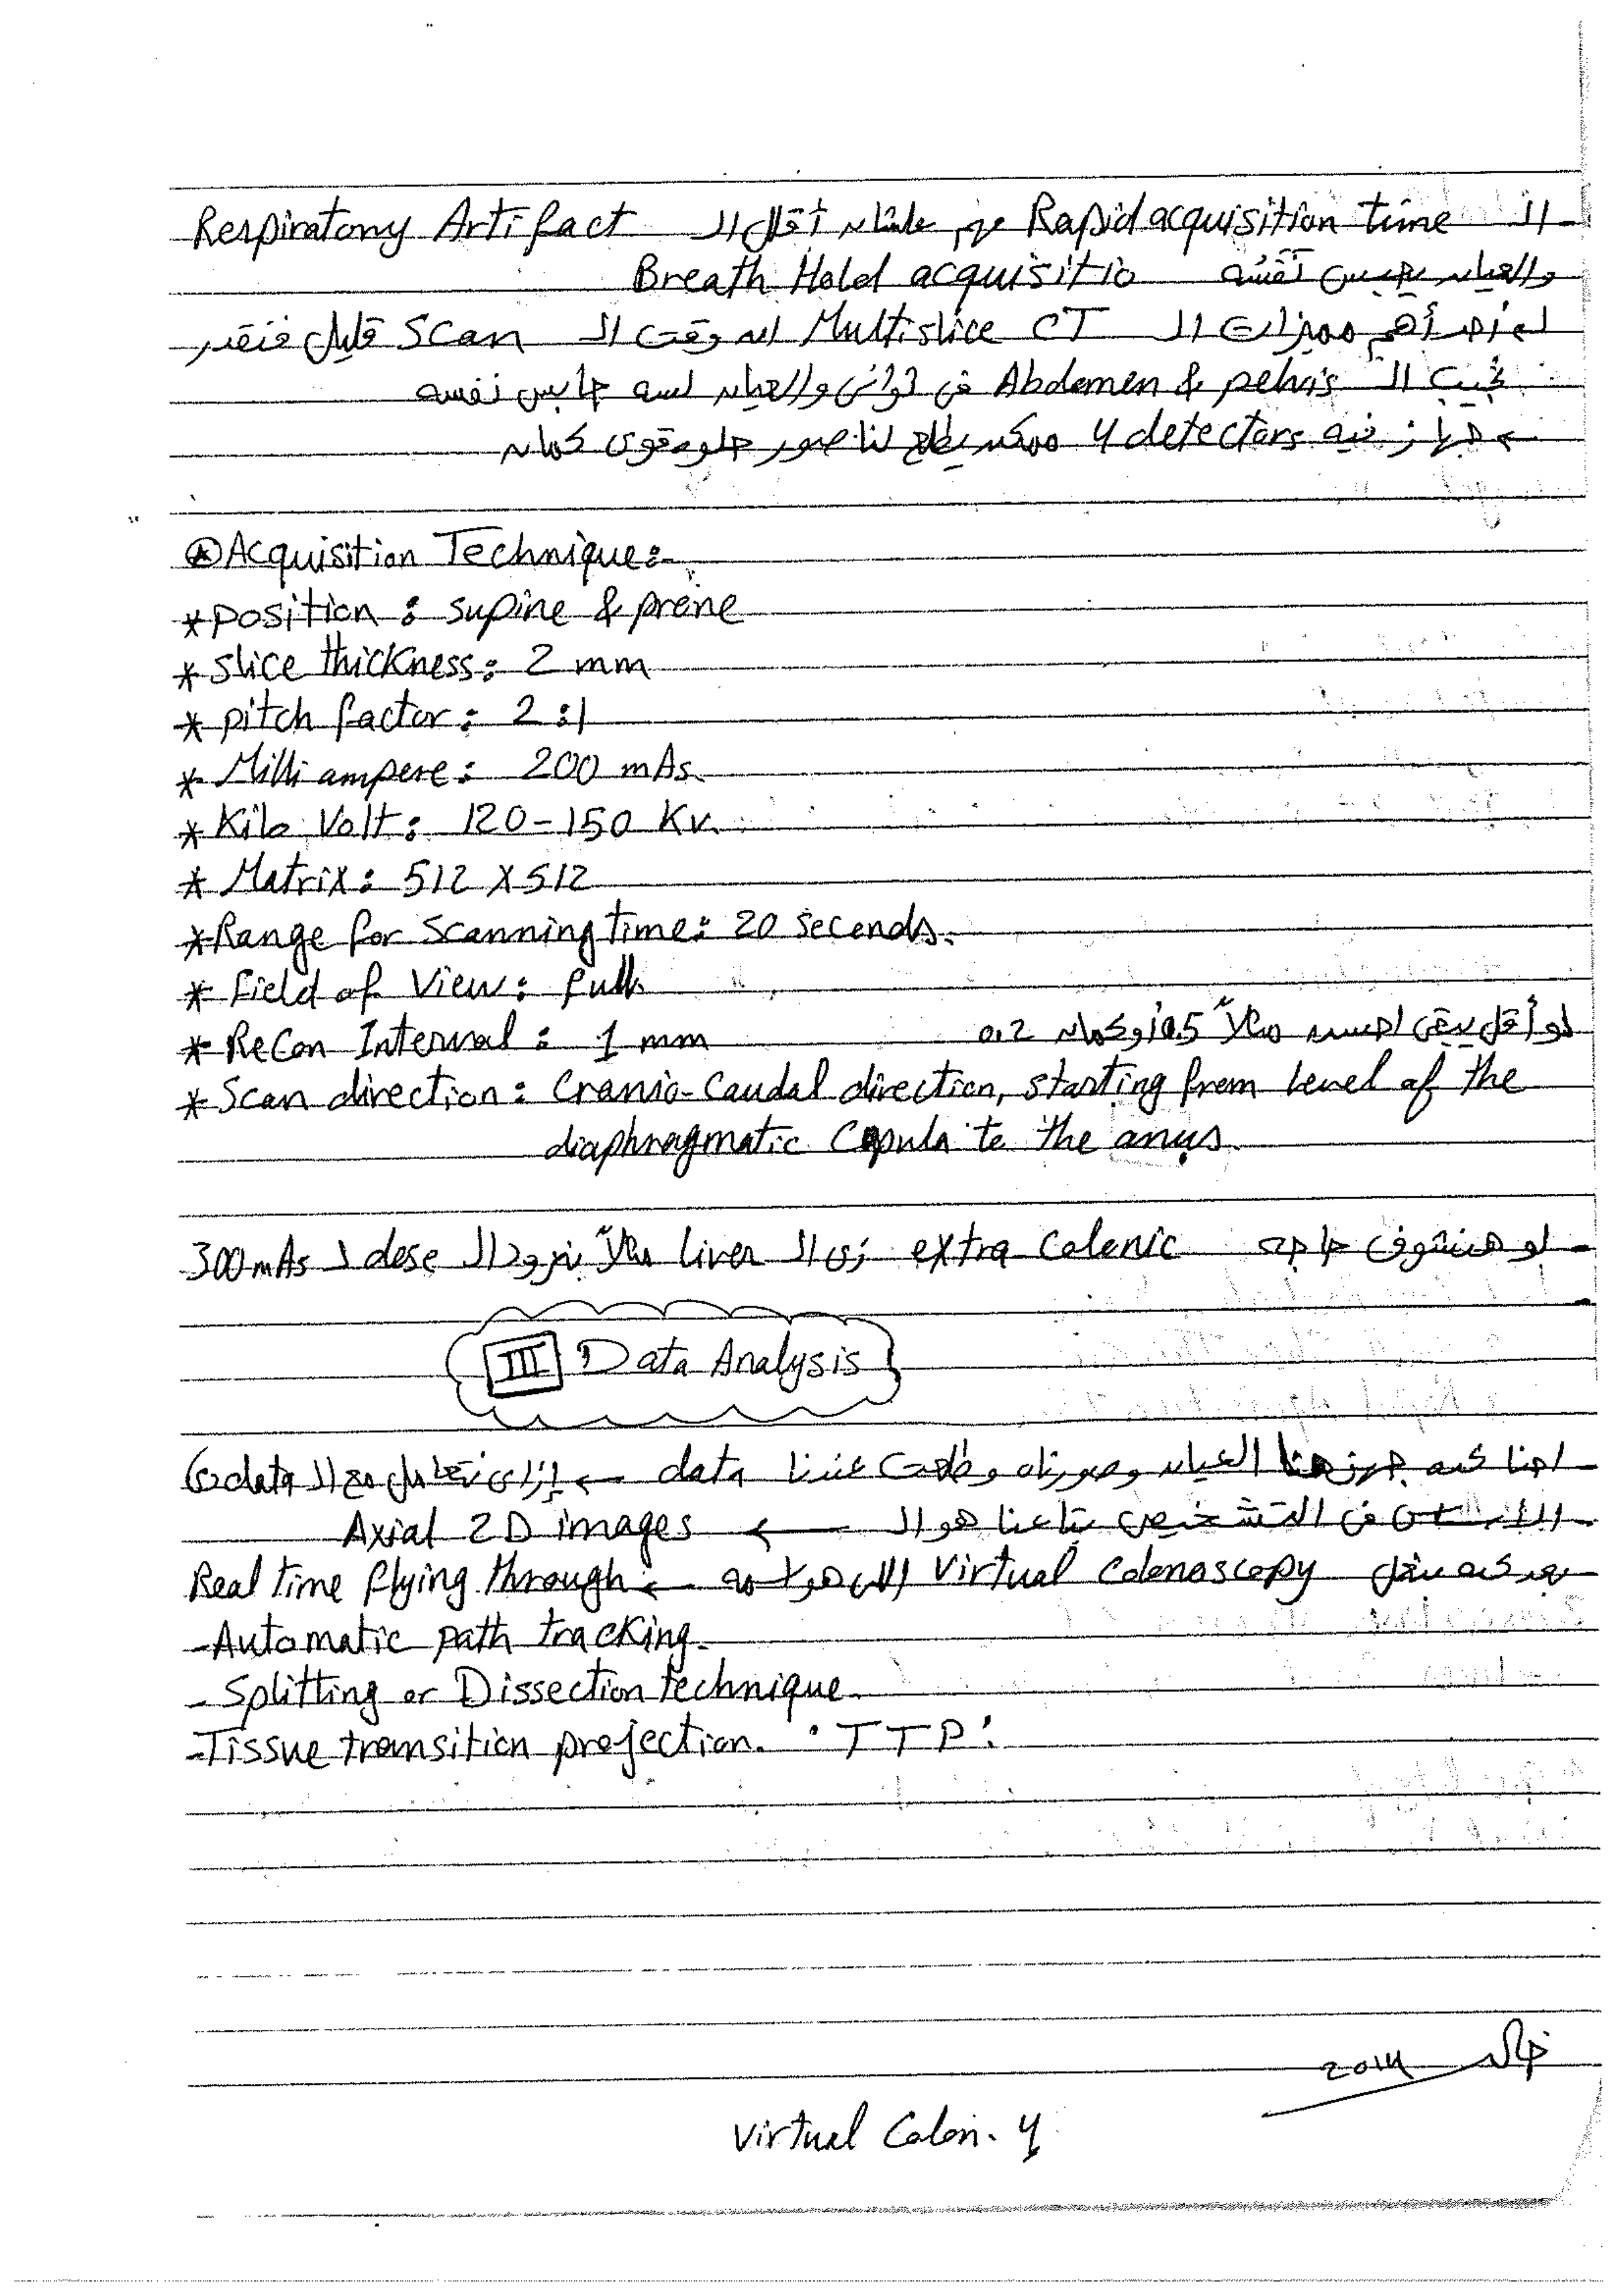 - الـ Rapid acquisition time مهم علشان أقلل الـ Respiratory Artifact
والعيان بيحبس نفسه Breath Hold acquisitio
أحد أهم مميزات الـ Multislice CT ان وقت الـ Scan قليل فنقدر
نجيب الـ Abdomen & pelvis في ثواني والعيان لسه حابس نفسه
← جهاز فيه 4 detectors ممكن يطلع لنا صور حلوة قوى كمان
⊛ Acquisition Technique:-
* position : supine & prone
* slice thickness: 2 mm
* pitch factor: 2:1
* Milli ampere: 200 mAs.
* Kilo Volt: 120-150 Kv.
* Matrix: 512 X 512
* Range for Scanning time: 20 seconds.
* Field of View: full.
* Recon Interval: 1 mm لو أقل يبقى احسن مثلاً 0.5 أو كمان 0.2
* Scan direction: Cranio-Caudal direction, starting from level of the
diaphragmatic Cupula to the anus.
- لو هنشوف حاجة extra colonic زى الـ liver مثلاً بنزود الـ dose لـ 300 mAs
III Data Analysis
- احنا كده جهزنا العيان وصورناه وطلعت عندنا data ← إزاى نتعامل مع الـ data دى
- الأساس فى التشخيص بتاعنا هو الـ ← Axial 2D images
- بعد كده ننقل Virtual Colonoscopy اللى هو ← Real time flying through
- Automatic path tracking.
- Splitting or Dissection technique.
- Tissue transition projection. "TTP"
2014
Virtual Colon. 4